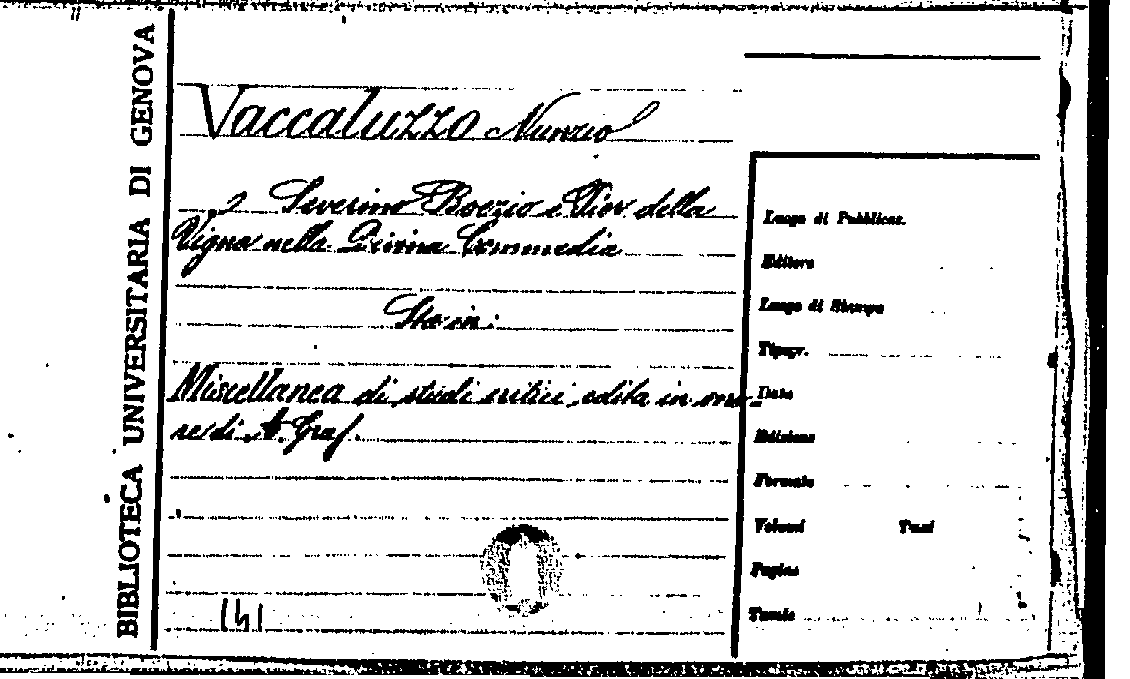 BIBLIOTECA UNIVERSITARIA DI GENOVA
Vaccaluzzo Nunzio
Severino Boezio e Pier della
Vigna nella Divina Commedia
Sta in:
Miscellanea di studi critici edita in ono-
re di A. Graf.
141
Luogo di Pubblicaz.
Editore
Luogo di Stampa
Tipogr.
Data
Edizione
Formato
Volumi Tomi
Pagine
Tavole